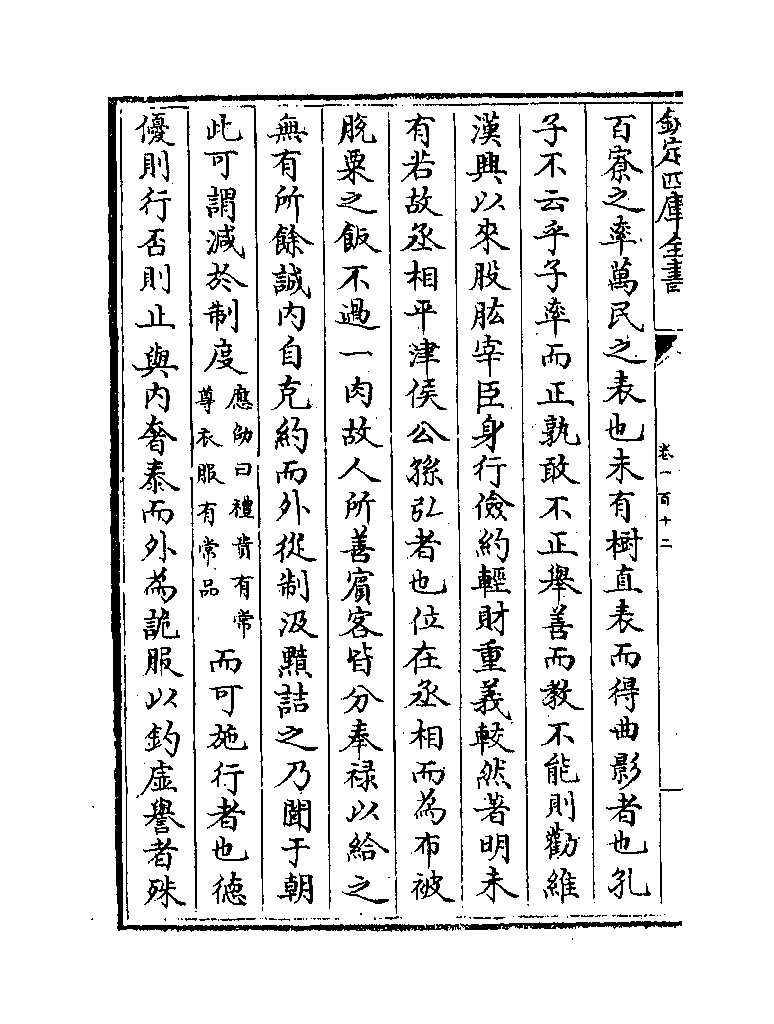 欽定四庫全書
卷一百十二
百寮之率萬民之表也未有樹直表而得曲影者也孔
子不云乎子率而正孰敢不正舉善而教不能則勸維
漢興以來股肱宰臣身行儉約輕財重義較然著明未
有若故丞相平津侯公孫弘者也位在丞相而為布被
脫粟之飯不過一肉故人所善賓客皆分奉祿以給之
無有所餘誠內自克約而外從制汲黯詰之乃聞于朝
此可謂減於制度應劭曰禮貴有常尊衣服有常品而可施行者也德
優則行否則止與內奢泰而外為詭服以釣虛譽者殊